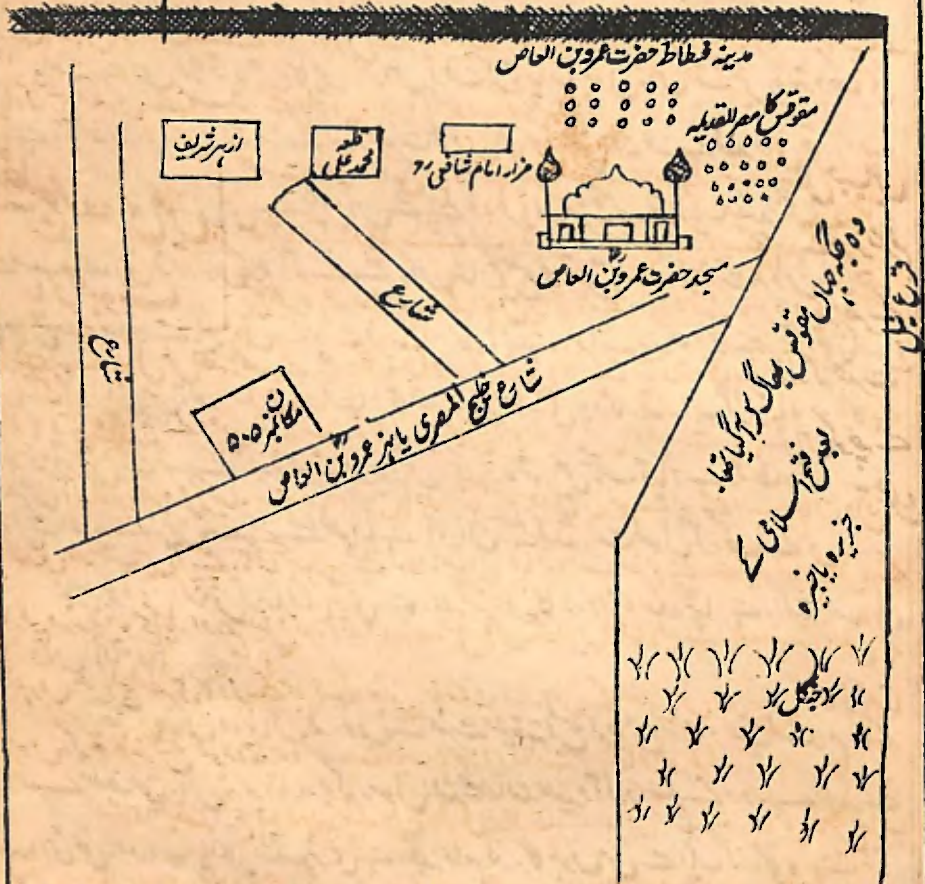 مدینہ فسطاط حضرت عمرو بن العاص
مقوقس کا مصر القدیمہ
ازہر شریف
قلعہ
محمد علی
مزار امام شافعی رح
مسجد حضرت عمروؓ بن العاص
شارع
شارع
مکان
نمبر ۵۰۵
شارع خلیج المصری یا نہر عمروؓ بن العاص
وہ جگہ جہاں مقوقس بھاگ کر آ گیا تھا۔
بعوض فتح اسلامی کے
جزیرہ یا جیزہ
جنگل